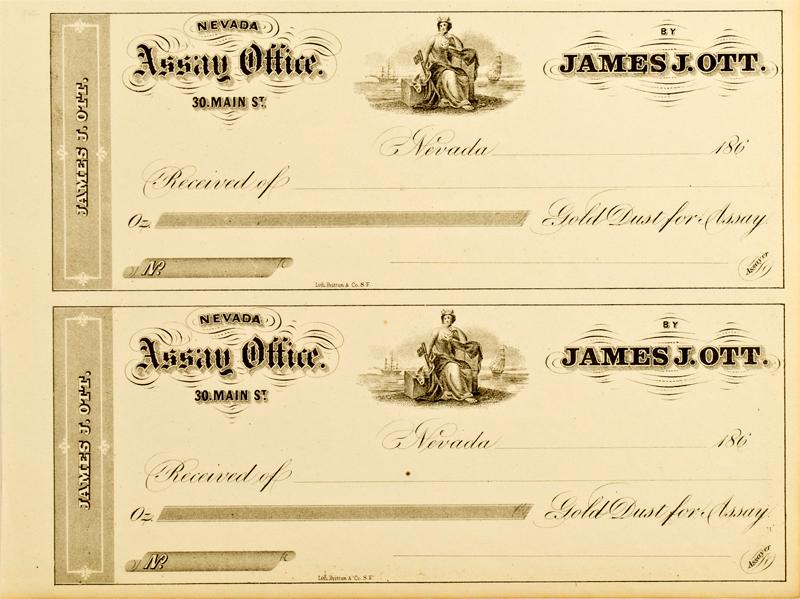 JAMES J. OTT.
NEVADA
Assay Office.
30. MAIN ST.
BY
JAMES J. OTT.
Nevada 186
Received of
Oz. Gold Dust for Assay
No.
Assayer
Lith. Britton & Co. S.F.
JAMES J. OTT.
NEVADA
Assay Office.
30. MAIN ST.
BY
JAMES J. OTT.
Nevada 186
Received of
Oz. Gold Dust for Assay
No.
Assayer
Lith. Britton & Co. S.F.